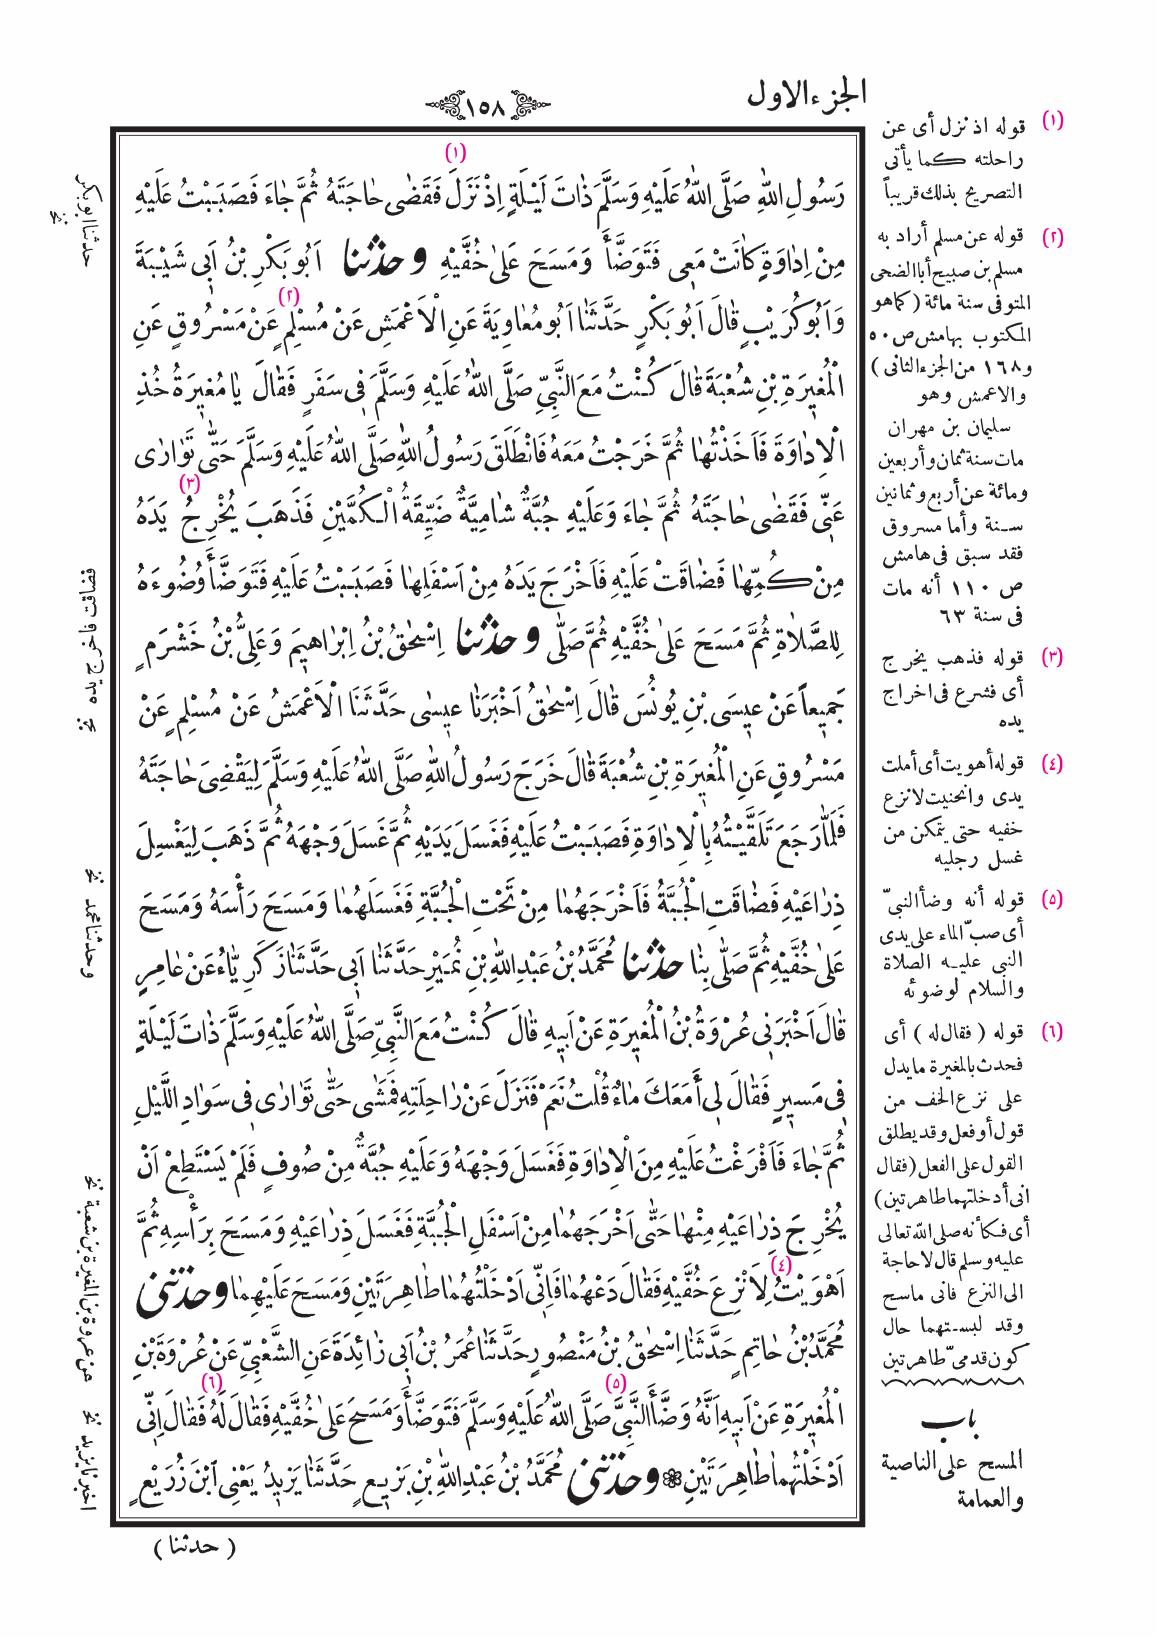 الجزء الاول
١٥٨
رَسُولِ اللّٰهِ صَلَّى اللّٰهُ عَلَيْهِ وَسَلَّمَ ذَاتَ لَيْلَةٍ اِذْ نَزَلَ (١) فَقَضٰى حَاجَتَهُ ثُمَّ جَاءَ فَصَبَبْتُ عَلَيْهِ
مِنْ اِدَاوَةٍ كَانَتْ مَعِى فَتَوَضَّأَ وَمَسَحَ عَلىٰ خُفَّيْهِ وحدثنا اَبُو بَكْرِ بْنُ اَبِى شَيْبَةَ
وَاَبُو كُرَيْبٍ قَالَ اَبُو بَكْرٍ حَدَّثَنَا اَبُو مُعَاوِيَةَ عَنِ الْاَعْمَشِ عَنْ مُسْلِمٍ (٢) عَنْ مَسْرُوقٍ عَنِ
الْمُغِيرَةِ بْنِ شُعْبَةَ قَالَ كُنْتُ مَعَ النَّبِىِّ صَلَّى اللّٰهُ عَلَيْهِ وَسَلَّمَ فِى سَفَرٍ فَقَالَ يَا مُغِيرَةُ خُذِ
الْاِدَاوَةَ فَاَخَذْتُهَا ثُمَّ خَرَجْتُ مَعَهُ فَانْطَلَقَ رَسُولُ اللّٰهِ صَلَّى اللّٰهُ عَلَيْهِ وَسَلَّمَ حَتّٰى تَوَارٰى
عَنِّى فَقَضٰى حَاجَتَهُ ثُمَّ جَاءَ وَعَلَيْهِ جُبَّةٌ شَامِيَّةٌ ضَيِّقَةُ الْكُمَّيْنِ فَذَهَبَ يُخْرِجُ (٣) يَدَهُ
مِنْ كُمِّهَا فَضَاقَتْ عَلَيْهِ فَاَخْرَجَ يَدَهُ مِنْ اَسْفَلِهَا فَصَبَبْتُ عَلَيْهِ فَتَوَضَّأَ وُضُوءَهُ
لِلصَّلَاةِ ثُمَّ مَسَحَ عَلىٰ خُفَّيْهِ ثُمَّ صَلّٰى وحدثنا اِسْحٰقُ بْنُ اِبْرَاهِيمَ وَعَلِىُّ بْنُ خَشْرَمٍ
جَمِيعاً عَنْ عِيسَى بْنِ يُونُسَ قَالَ اِسْحٰقُ اَخْبَرَنَا عِيسٰى حَدَّثَنَا الْاَعْمَشُ عَنْ مُسْلِمٍ عَنْ
مَسْرُوقٍ عَنِ الْمُغِيرَةِ بْنِ شُعْبَةَ قَالَ خَرَجَ رَسُولُ اللّٰهِ صَلَّى اللّٰهُ عَلَيْهِ وَسَلَّمَ لِيَقْضِىَ حَاجَتَهُ
فَلَمَّا رَجَعَ تَلَقَّيْتُهُ بِالْاِدَاوَةِ فَصَبَبْتُ عَلَيْهِ فَغَسَلَ يَدَيْهِ ثُمَّ غَسَلَ وَجْهَهُ ثُمَّ ذَهَبَ لِيَغْسِلَ
ذِرَاعَيْهِ فَضَاقَتِ الْجُبَّةُ فَاَخْرَجَهُمَا مِنْ تَحْتِ الْجُبَّةِ فَغَسَلَهُمَا وَمَسَحَ رَأْسَهُ وَمَسَحَ
عَلىٰ خُفَّيْهِ ثُمَّ صَلّٰى بِنَا حدثنا مُحَمَّدُ بْنُ عَبْدِ اللّٰهِ بْنِ نُمَيْرٍ حَدَّثَنَا اَبِى حَدَّثَنَا زَكَرِيَّاءُ عَنْ عَامِرٍ
قَالَ اَخْبَرَنِى عُرْوَةُ بْنُ الْمُغِيرَةِ عَنْ اَبِيهِ قَالَ كُنْتُ مَعَ النَّبِىِّ صَلَّى اللّٰهُ عَلَيْهِ وَسَلَّمَ ذَاتَ لَيْلَةٍ
فِى مَسِيرٍ فَقَالَ لِى أَمَعَكَ مَاءٌ قُلْتُ نَعَمْ فَنَزَلَ عَنْ رَاحِلَتِهِ فَمَشٰى حَتّٰى تَوَارٰى فِى سَوَادِ اللَّيْلِ
ثُمَّ جَاءَ فَاَفْرَغْتُ عَلَيْهِ مِنَ الْاِدَاوَةِ فَغَسَلَ وَجْهَهُ وَعَلَيْهِ جُبَّةٌ مِنْ صُوفٍ فَلَمْ يَسْتَطِعْ اَنْ
يُخْرِجَ ذِرَاعَيْهِ مِنْهَا حَتّٰى اَخْرَجَهُمَا مِنْ اَسْفَلِ الْجُبَّةِ فَغَسَلَ ذِرَاعَيْهِ وَمَسَحَ بِرَأْسِهِ ثُمَّ
اَهْوَيْتُ (٤) لِاَنْزِعَ خُفَّيْهِ فَقَالَ دَعْهُمَا فَاِنِّى اَدْخَلْتُهُمَا طَاهِرَتَيْنِ وَمَسَحَ عَلَيْهِمَا وحدثنى
مُحَمَّدُ بْنُ حَاتِمٍ حَدَّثَنَا اِسْحٰقُ بْنُ مَنْصُورٍ حَدَّثَنَا عُمَرُ بْنُ اَبِى زَائِدَةَ عَنِ الشَّعْبِىِّ عَنْ عُرْوَةَ بْنِ
الْمُغِيرَةِ عَنْ اَبِيهِ اَنَّهُ وَضَّأَ النَّبِىَّ (٥) صَلَّى اللّٰهُ عَلَيْهِ وَسَلَّمَ فَتَوَضَّأَ وَمَسَحَ عَلىٰ خُفَّيْهِ فَقَالَ لَهُ (٦) فَقَالَ اِنِّى
اَدْخَلْتُهُمَا طَاهِرَتَيْنِ ❁ وحدثنى مُحَمَّدُ بْنُ عَبْدِ اللّٰهِ بْنِ بَزِيعٍ حَدَّثَنَا يَزِيدُ يَعْنِى ابْنَ زُرَيْعٍ
( حدثنا )
(١) قوله اذ نزل أى عن
راحلته كما يأتى
التصريح بذلك قريباً
(٢) قوله عن مسلم أراد به
مسلم بن صبيح أبا الضحى
المتوفى سنة مائة ( كما هو
المكتوب بهامش ص ٥٠
و ١٦٨ من الجزء الثانى )
والاعمش وهو
سليمان بن مهران
مات سنة ثمان وأربعين
ومائة عن أربع وثمانين
سنة وأما مسروق
فقد سبق فى هامش
ص ١١٠ أنه مات
فى سنة ٦٣
(٣) قوله فذهب يخرج
أى فشرع فى اخراج
يده
(٤) قوله أهويت أى أملت
يدى وانحنيت لانزع
خفيه حتى يتمكن من
غسل رجليه
(٥) قوله أنه وضأ النبىّ
أى صبّ الماء على يدى
النبى عليه الصلاة
والسلام لوضوئه
(٦) قوله ( فقال له ) أى
فحدث بالمغيرة ما يدل
على نزع الخف من
قول أو فعل وقد يطلق
القول على الفعل ( فقال
انى أدخلتهما طاهرتين )
أى فكأنه صلى الله تعالى
عليه وسلم قال لا حاجة
الى النزع فانى ماسح
وقد لبستهما حال
كون قدمىّ طاهرتين
باب
المسح على الناصية
والعمامة
حدثنا ابو بكر نخ
فضاقت فاخرج يده نخ
وحدثنا محمد نخ
عن عروة بن المغيرة بن شعبة نخ
اخبرنا يزيد نخ